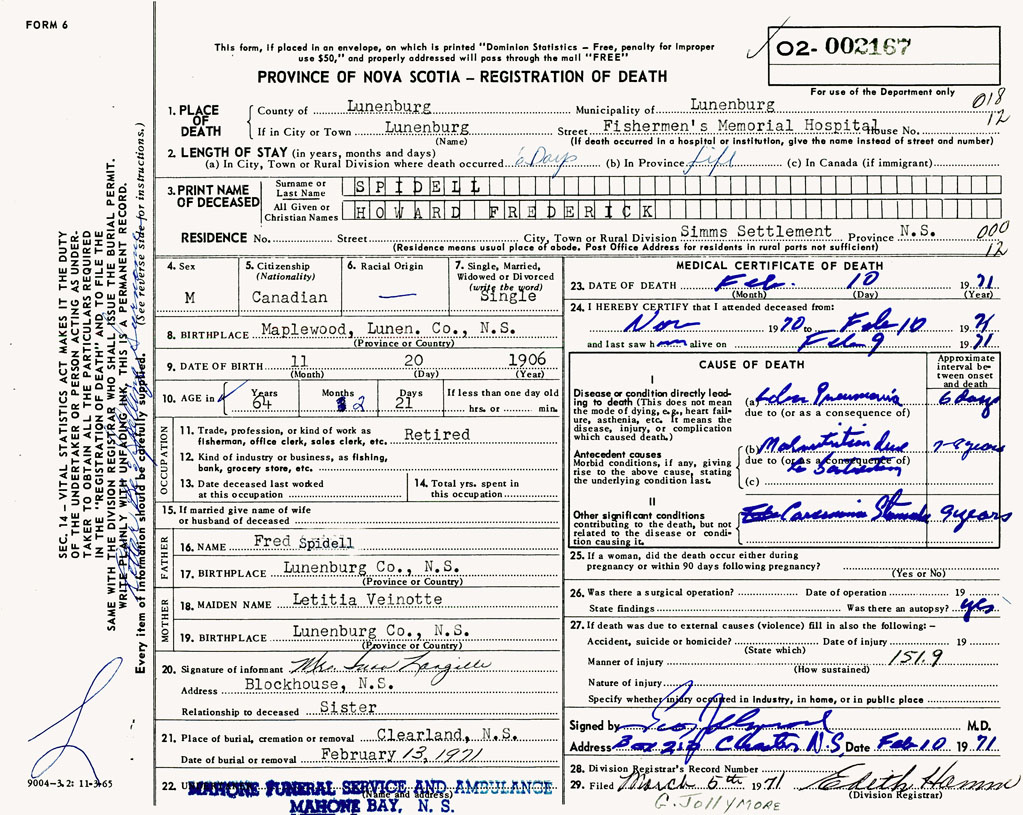 FORM 6
This form, if placed in an envelope, on which is printed "Dominion Statistics – Free, penalty for improper
use $50," and properly addressed will pass through the mail "FREE"
PROVINCE OF NOVA SCOTIA – REGISTRATION OF DEATH
02- 002167
For use of the Department only
018
12
1. PLACE OF DEATH
County of Lunenburg Municipality of Lunenburg
If in City or Town Lunenburg Street Fishermen's Memorial Hospital House No.
(Name) (If death occurred in a hospital or institution, give the name instead of street and number)
2. LENGTH OF STAY (in years, months and days)
(a) In City, Town or Rural Division where death occurred 6 Days (b) In Province life (c) In Canada (if immigrant)
3. PRINT NAME OF DECEASED
Surname or Last Name SPIDELL
All Given or Christian Names HOWARD FREDERICK
RESIDENCE No. Street City, Town or Rural Division Simms Settlement Province N.S. 000
(Residence means usual place of abode. Post Office Address for residents in rural parts not sufficient) 12
4. Sex M
5. Citizenship (Nationality) Canadian
6. Racial Origin —
7. Single, Married, Widowed or Divorced (write the word) Single
8. BIRTHPLACE Maplewood, Lunen. Co., N.S.
(Province or Country)
9. DATE OF BIRTH 11 20 1906
(Month) (Day) (Year)
10. AGE in Years 64 Months 2 Days 21 If less than one day old hrs. or min.
OCCUPATION
11. Trade, profession, or kind of work as fisherman, office clerk, sales clerk, etc. Retired
12. Kind of industry or business, as fishing, bank, grocery store, etc.
13. Date deceased last worked at this occupation
14. Total yrs. spent in this occupation
15. If married give name of wife or husband of deceased
FATHER
16. NAME Fred Spidell
17. BIRTHPLACE Lunenburg Co., N.S.
(Province or Country)
MOTHER
18. MAIDEN NAME Letitia Veinotte
19. BIRTHPLACE Lunenburg Co., N.S.
(Province or Country)
20. Signature of informant Mrs.
Address Blockhouse, N.S.
Relationship to deceased Sister
21. Place of burial, cremation or removal Clearland, N.S.
Date of burial or removal February 13, 1971
22. MAHONE FUNERAL SERVICE AND AMBULANCE
(Name and address)
MAHONE BAY, N. S.
MEDICAL CERTIFICATE OF DEATH
23. DATE OF DEATH Feb. 10 1971
(Month) (Day) (Year)
24. I HEREBY CERTIFY that I attended deceased from:
Nov 1970 to Feb 10 1971
and last saw him alive on Feb 9 1971
CAUSE OF DEATH
Approximate interval between onset and death
I
Disease or condition directly leading to death (This does not mean the mode of dying, e.g., heart failure, asthenia, etc. It means the disease, injury, or complication which caused death.)
(a) Pneumonia 6 days
due to (or as a consequence of)
Antecedent causes
Morbid conditions, if any, giving rise to the above cause, stating the underlying condition last.
(b) Malnutrition due 7-8 years
due to (or as a consequence of)
to
(c)
II
Other significant conditions
contributing to the death, but not related to the disease or condition causing it.
Carcinoma Stomach 9 years
25. If a woman, did the death occur either during
pregnancy or within 90 days following pregnancy?
(Yes or No)
26. Was there a surgical operation? Date of operation 19
State findings Was there an autopsy? yes
27. If death was due to external causes (violence) fill in also the following:–
Accident, suicide or homicide? Date of injury 19
(State which)
Manner of injury 151.9
(How sustained)
Nature of injury
Specify whether injury occurred in industry, in home, or in public place
Signed by M.D.
Address Box Chester N.S. Date Feb 10 1971
28. Division Registrar's Record Number
29. Filed March 5th 1971 Edith Hamm
(Division Registrar)
G. JOLLYMORE
SEC. 14 – VITAL STATISTICS ACT MAKES IT THE DUTY
OF THE UNDERTAKER OR PERSON ACTING AS UNDER-
TAKER TO OBTAIN ALL THE PARTICULARS REQUIRED
IN THE "REGISTRATION OF DEATH" AND TO FILE THE
SAME WITH THE DIVISION REGISTRAR WHO SHALL ISSUE THE BURIAL PERMIT.
WRITE PLAINLY WITH UNFADING INK, THIS IS A PERMANENT RECORD.
Every item of information should be carefully supplied. (See reverse side for instructions.)
9004-3.2: 11-3-65